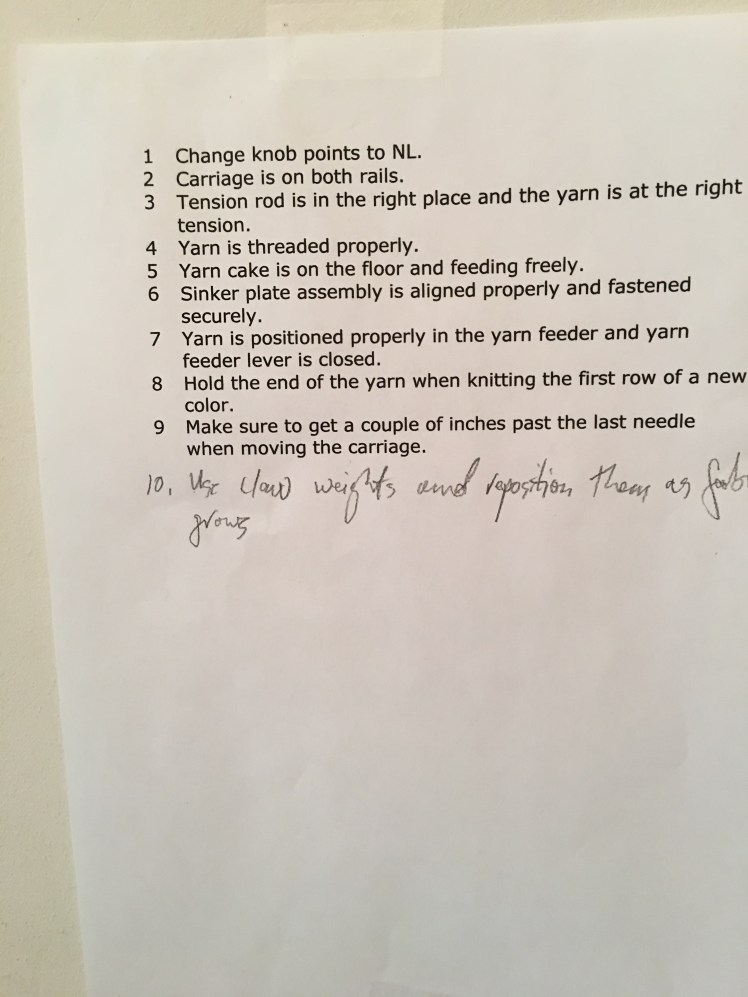 1 Change knob points to NL.
2 Carriage is on both rails.
3 Tension rod is in the right place and the yarn is at the right
tension.
4 Yarn is threaded properly.
5 Yarn cake is on the floor and feeding freely.
6 Sinker plate assembly is aligned properly and fastened
securely.
7 Yarn is positioned properly in the yarn feeder and yarn
feeder lever is closed.
8 Hold the end of the yarn when knitting the first row of a new
color.
9 Make sure to get a couple of inches past the last needle
when moving the carriage.
10. Use claw weights and reposition them as
grows